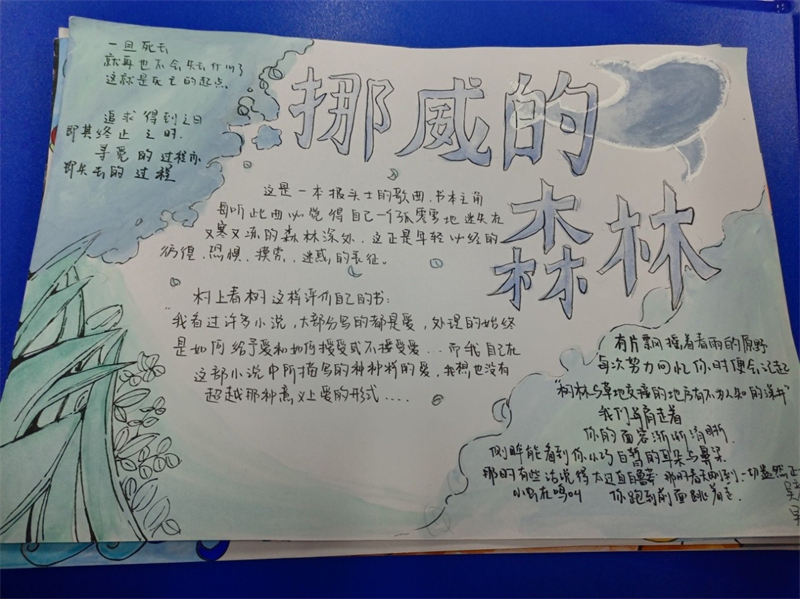 一旦死去
就再也不会失去什么了
这就是死亡的起点
追求得到之日
即其终止之时.
寻觅的过程亦
即失去的过程
挪威的
森林
这是一本披头士的歌曲,书本主角
每听此曲必觉得自己一个孤零零地迷失在
又寒又冻的森林深处,这正是年轻必经的
彷徨、恐惧、摸索、迷惑的表征。
村上春树这样评价自己的书:
"我看过许多小说,大部分写的都是爱,处理的始终
是如何给予爱和如何接受或不接受爱...而我自己在
这部小说中所描写的种种样的爱,我想也没有
超越那种意义上爱的形式....
有片飘摇着春雨的原野
每次努力回忆你时便会泛起
"树林与草地交接的地方有不为人知的深井"
我们并肩走着
你的面容渐渐清晰.
侧眸能看到你小巧白皙的耳朵与鼻朵
那时有些话说得太过直白鲁莽 那时春天刚到一切盎然正
小鸟在鸣叫 你跑到前面跳着走.